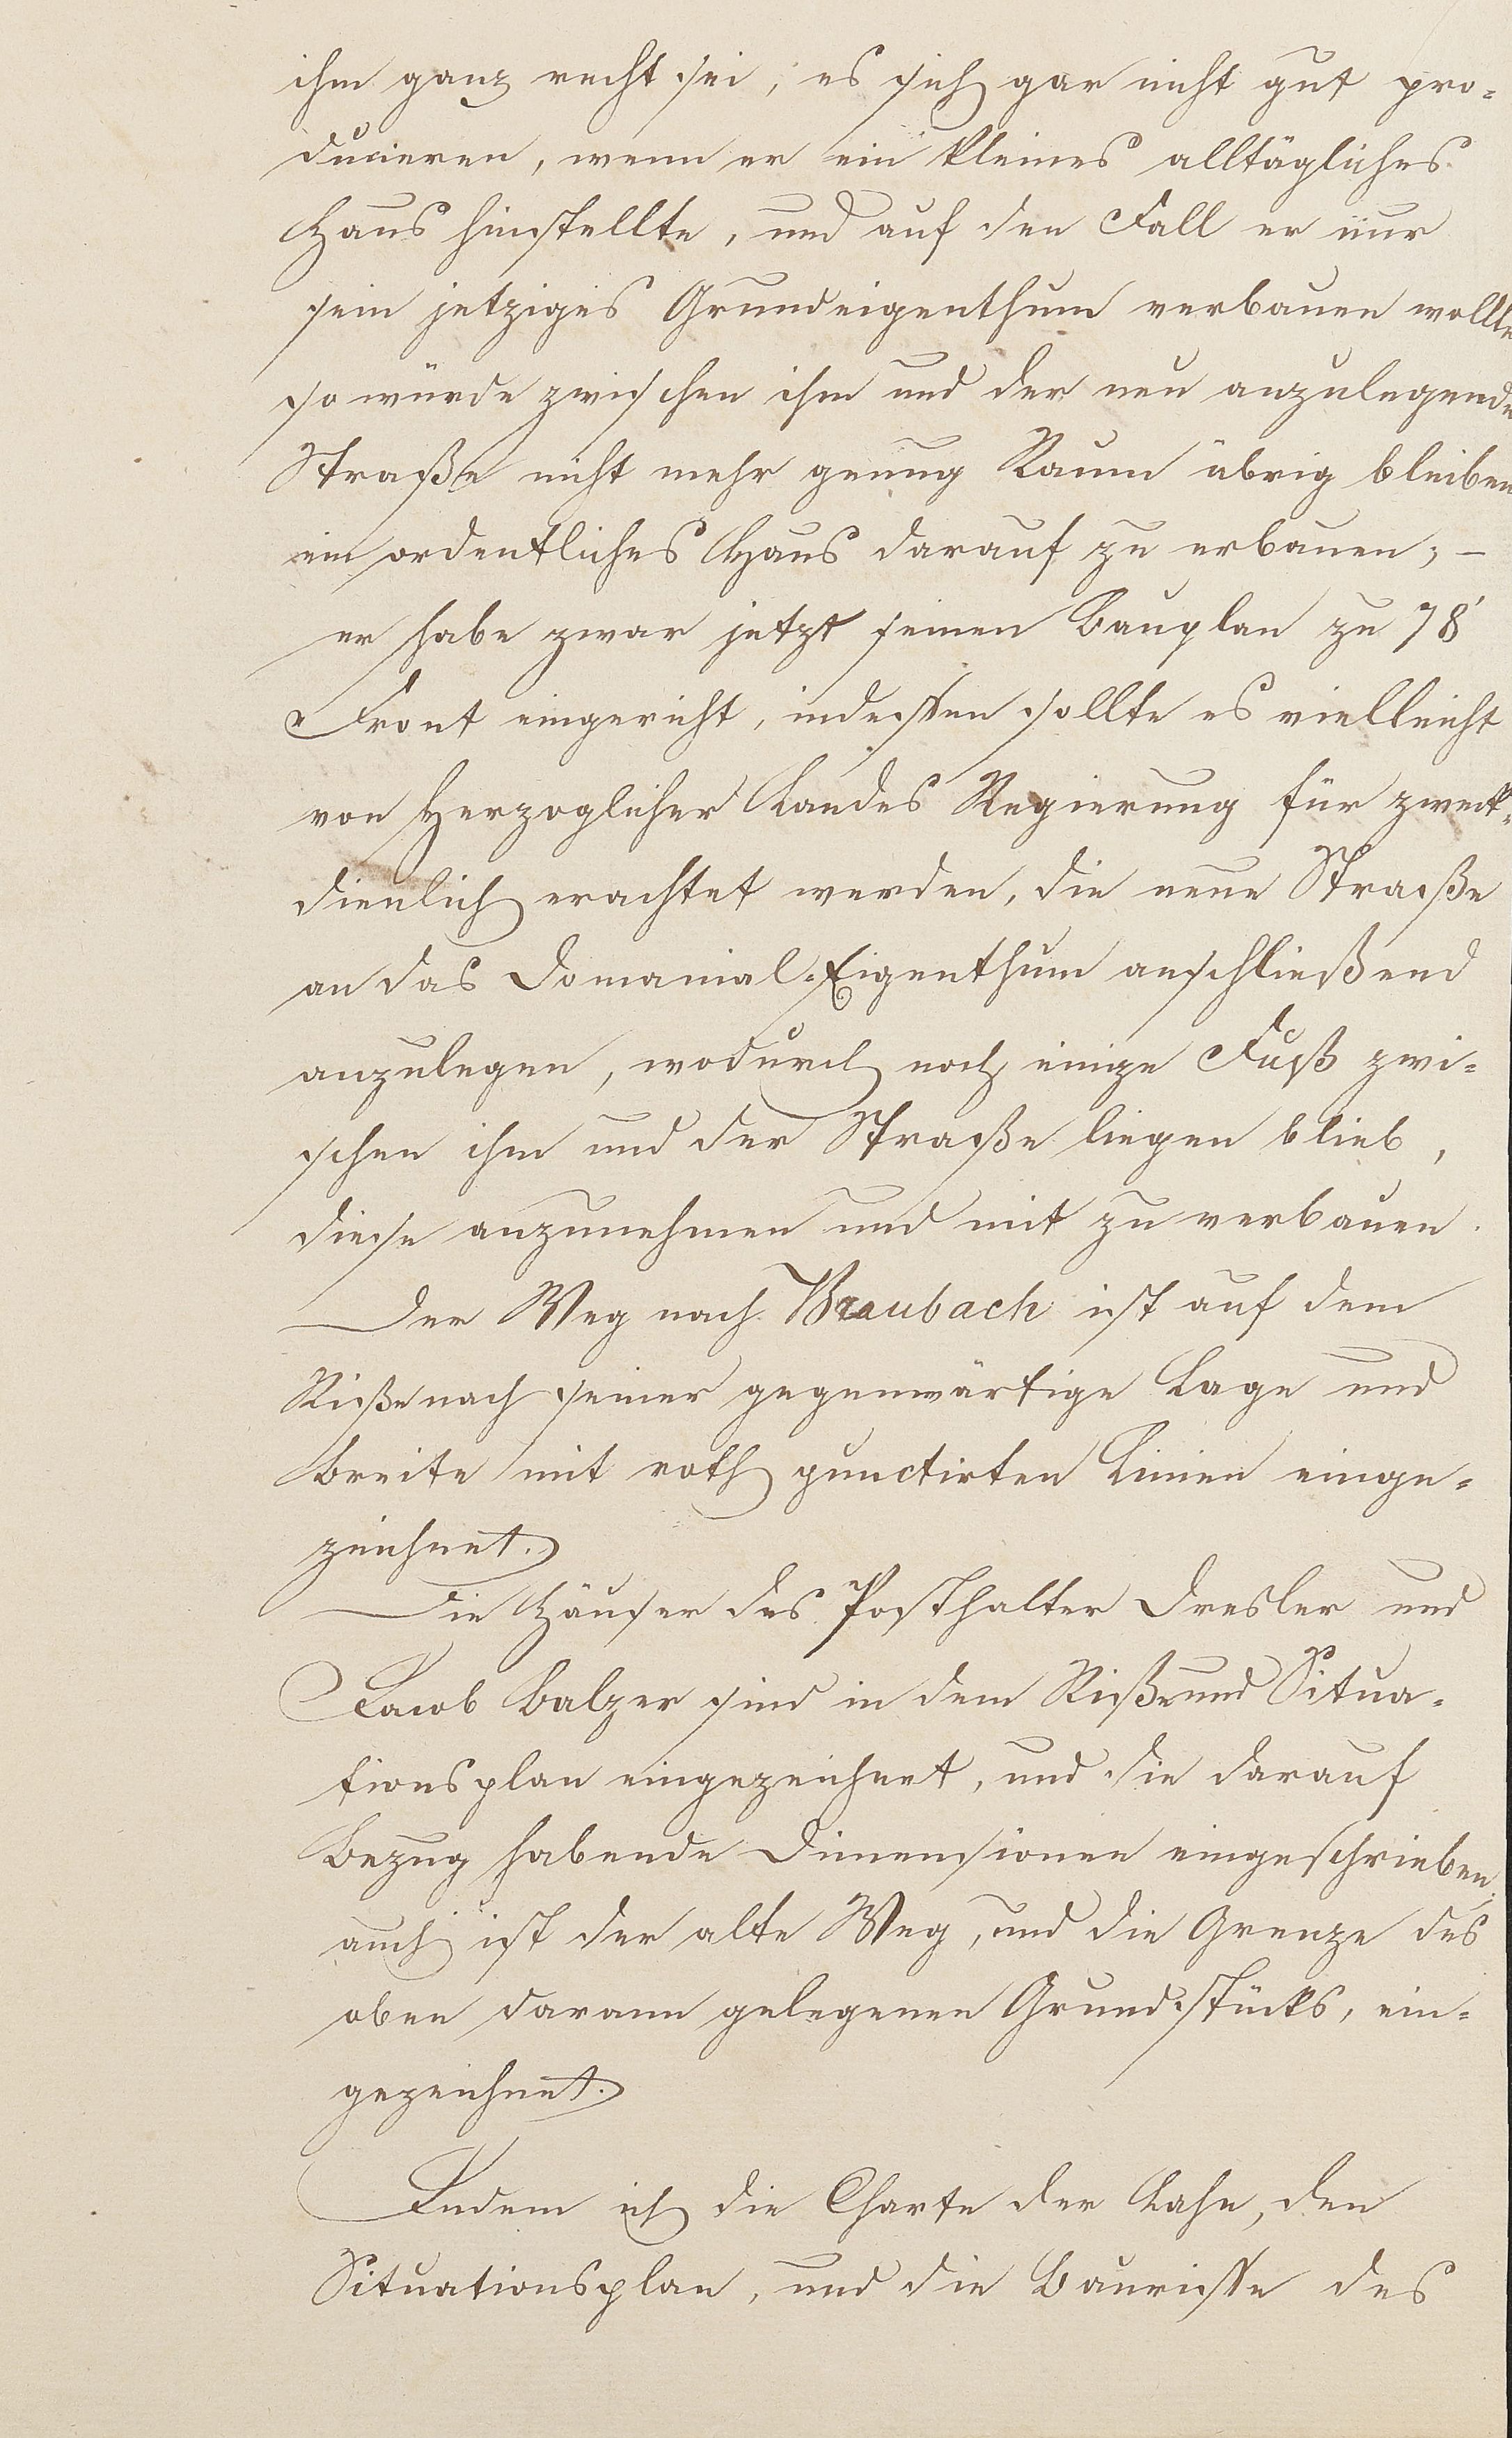 ihm ganz recht sei, es sich gar nicht gut pro-
ducieren, wenn er ein kleines alltägliches
Haus hinstellte, und auf den Fall er nur
sein jetziges Grundeigenthum verbauen wollte
so würde zwischen ihm und der neu anzulegende
Straße nicht mehr genug Raum übrig bleiben
ein ordentliches Haus darauf zu erbauen; –
er habe zwar jetzt seinen Bauplan zu 78'
Front eingericht, indessen sollte es vielleicht
von Herzoglicher Landes Regierung für zweck-
dienlich erachtet werden, die neue Straße
an das Domanial-Eigenthum anschließend
anzulegen, wodurch noch einige Fuß zwi-
schen ihm und der Straße liegen blieb,
diese anzunehmen und mit zu verbauen.
Der Weg nach Braubach ist auf dem
Riße nach seiner gegenwärtige Lage und
Breite mit roth punctirten Linien einge-
zeichnet.
Die Häuser des Posthalter Dresler und
Jacob Balzer sind in dem Riße und Situa-
tionsplan eingezeichnet, und die darauf
Bezug habende Dimensionen eingeschrieben,
auch ist der alte Weg, und die Grenze des
oben darann gelegenen Grundstücks, ein-
gezeichnet.
Indem ich die Charte der Lahn, den
Situationsplan, und die Baurisse des